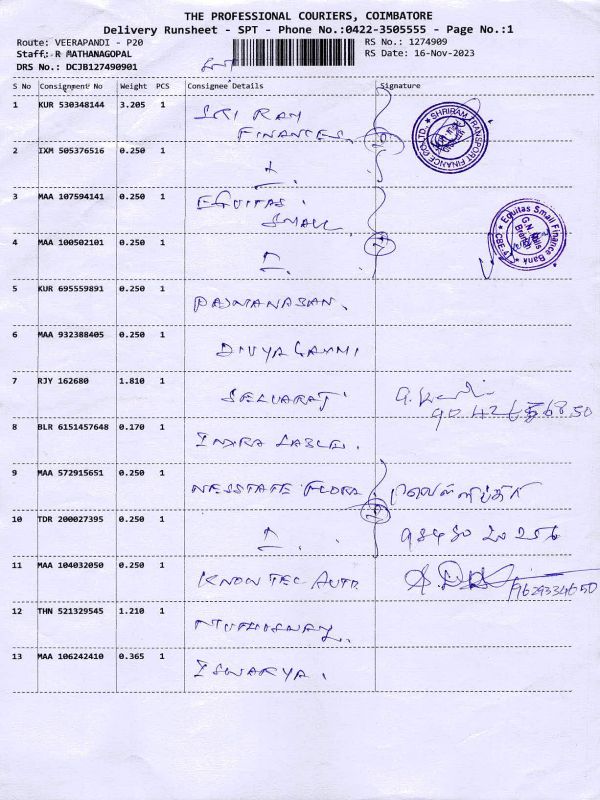 THE PROFESSIONAL COURIERS, COIMBATORE
Delivery Runsheet - SPT - Phone No.:0422-3505555 - Page No.:1
Route: VEERAPANDI - P20 RS No.: 1274909
Staff: R MATHANAGOPAL RS Date: 16-Nov-2023
DRS No.: DCJB127490901
S No Consignment No Weight PCS Consignee Details Signature
1 KUR 530348144 3.205 1 SRI RAM
FINANCES.
SHRIRAM TRANSPORT FINANCE CO LTD.
2 IXM 505376516 0.250 1
3 MAA 107594141 0.250 1 EQUITAS.
SMALL
Equitas Small Finance Bank
G.N. Mills
Branch
CBE
4 MAA 100502101 0.250 1
5 KUR 695559891 0.250 1 PADMANABAN.
6 MAA 932388405 0.250 1 DIVYA LAXMI
7 RJY 162680 1.810 1 SELVARAJ
8 BLR 6151457648 0.170 1 INDIRA
9 MAA 572915651 0.250 1 FLORA
10 TDR 200027395 0.250 1
11 MAA 104032050 0.250 1 KNOW TEC AUTO
9629334650
12 THN 521329545 1.210 1 MUTHUSWAMY.
13 MAA 106242410 0.365 1 ISWARYA.